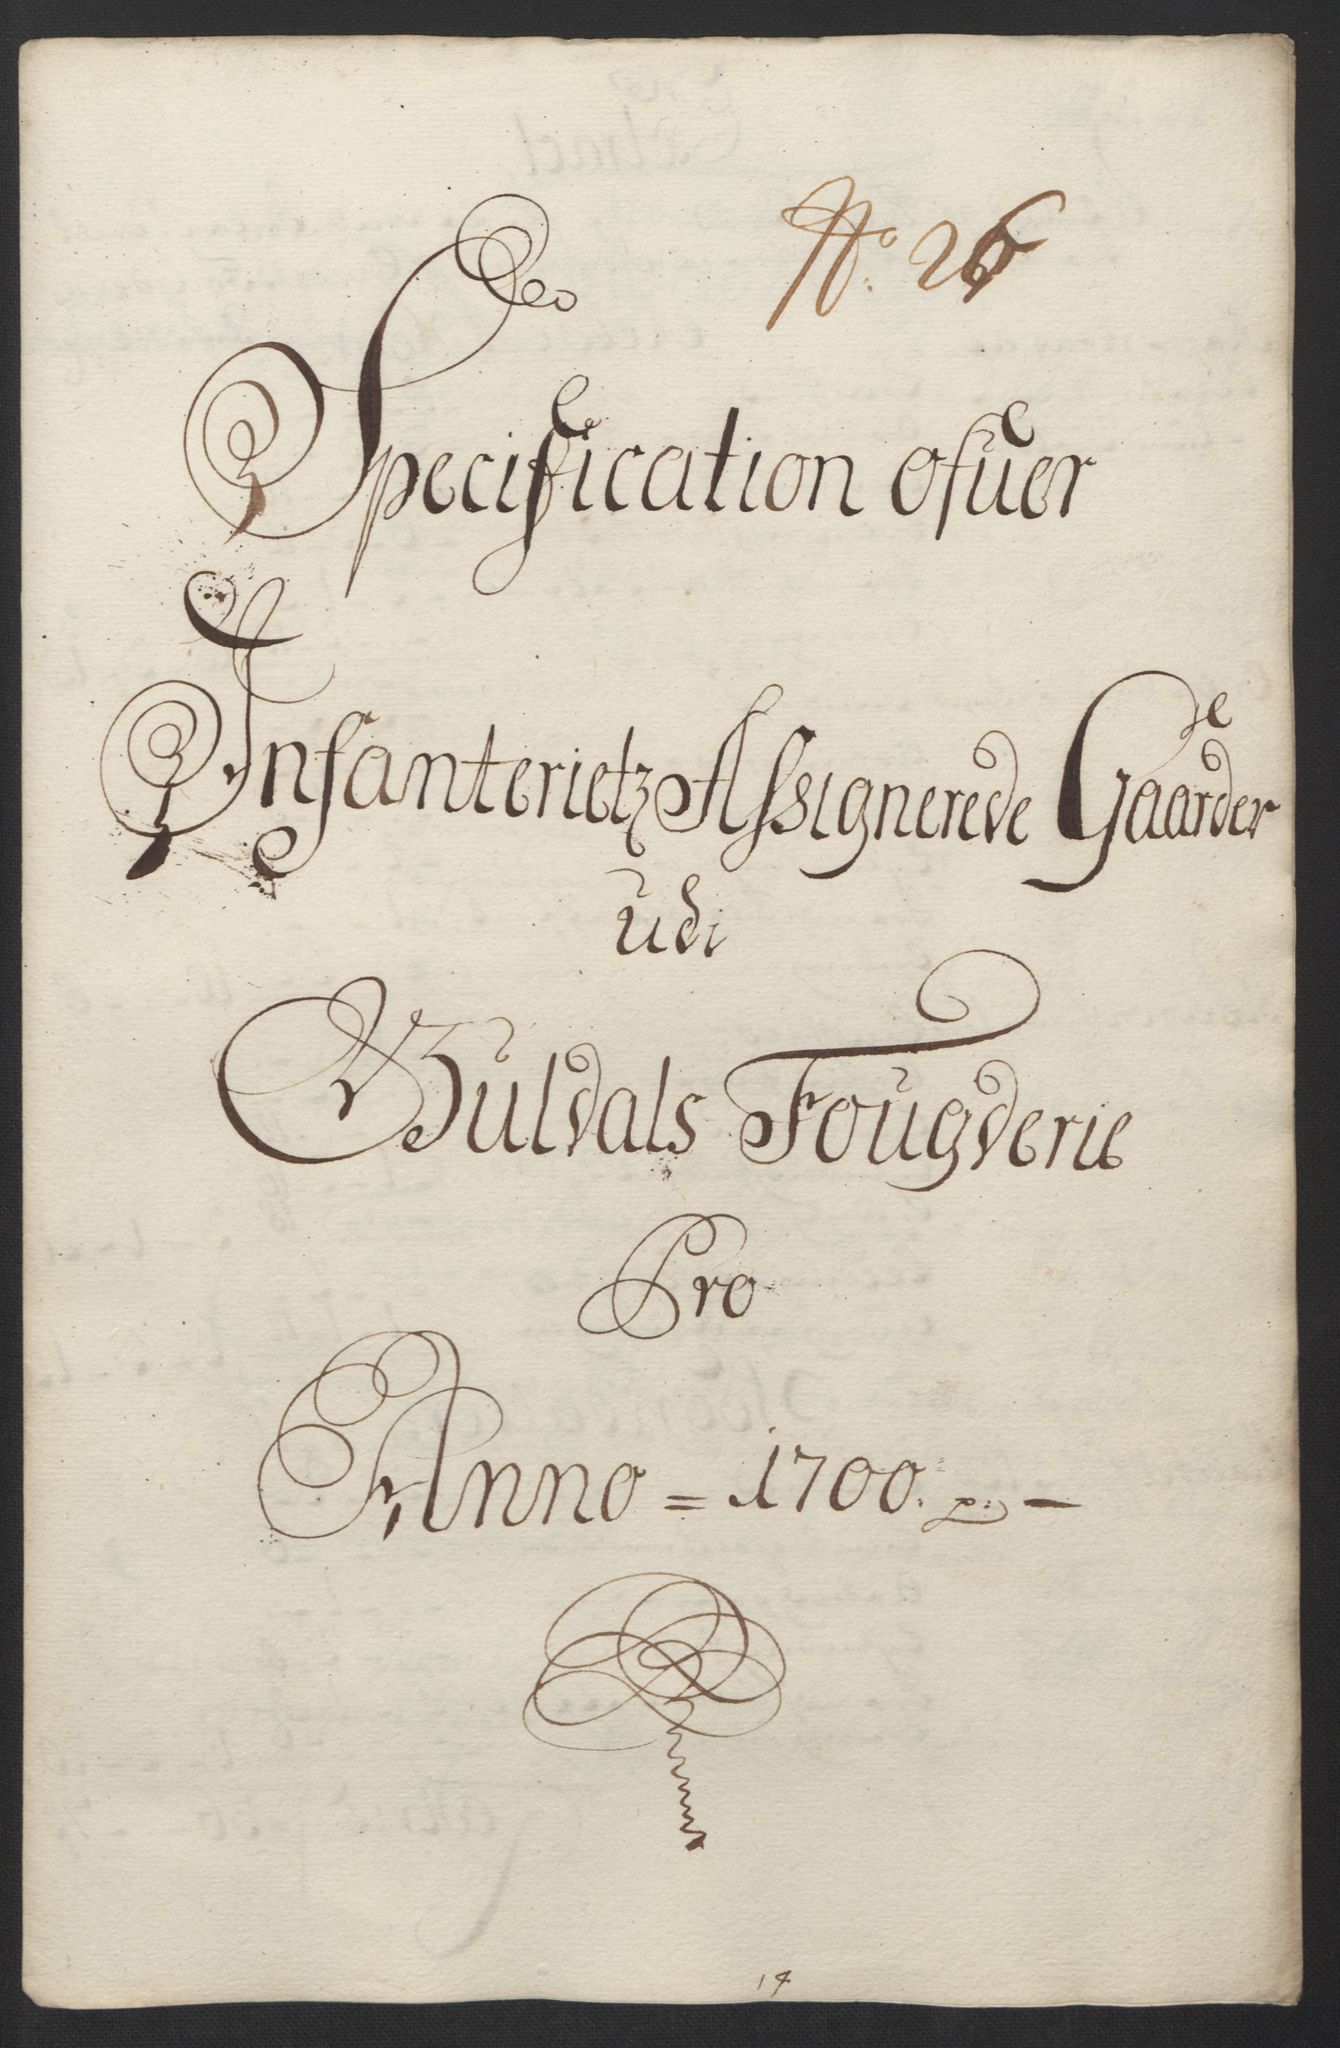 No. 26
Specification ofuer
Infanterietz Assignerede Gaarder
udi
Guldals Fougderie
Pro
Anno = 1700. p. —
14